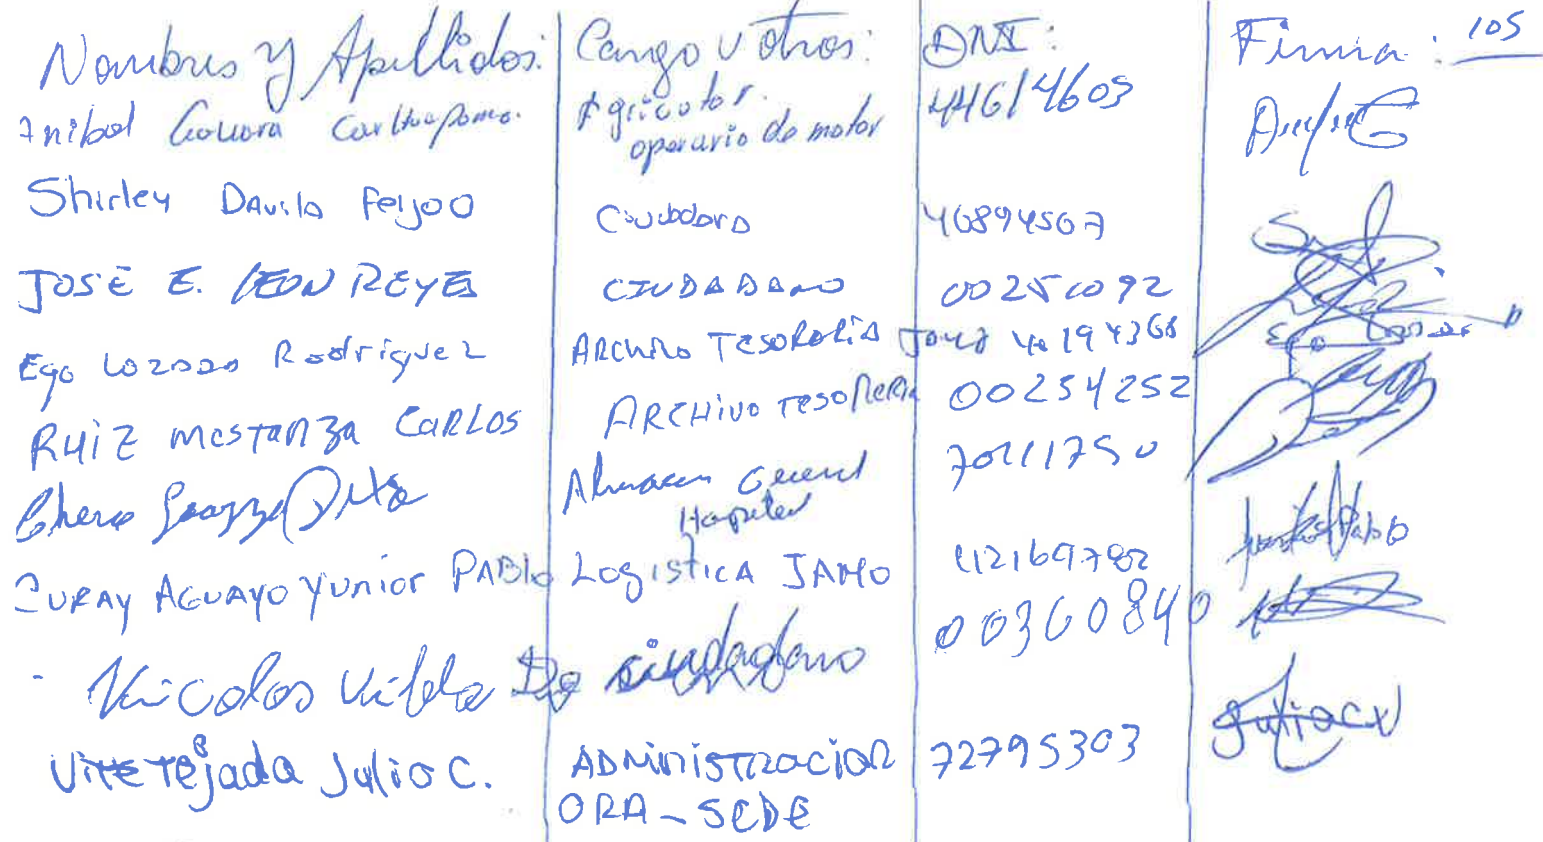 Nombres y Apellidos: Cargo u otros: DNI: Firma: 105
Anibal Guevara Agricutor. 44614603
operario de motor
Shirley Davila Feijoo Ciudadara 40894507
JOSE E. LEON REYES CIUDADANO 00251092
Ego Lozano Rodriguez ARCHIVO TESORERIA 40194368
RUIZ MESTANZA CARLOS ARCHIVO TESORERIA 00254252
Almacen General 70411750
Hospital
ZURAY AGUAYO YUNIOR PABLO LOGISTICA JAMO 42169782
Nicolas Vilela ciudadano 00360840
Vite Tejada Julio C. ADMINISTRACION 72795303
ORA - SEDE